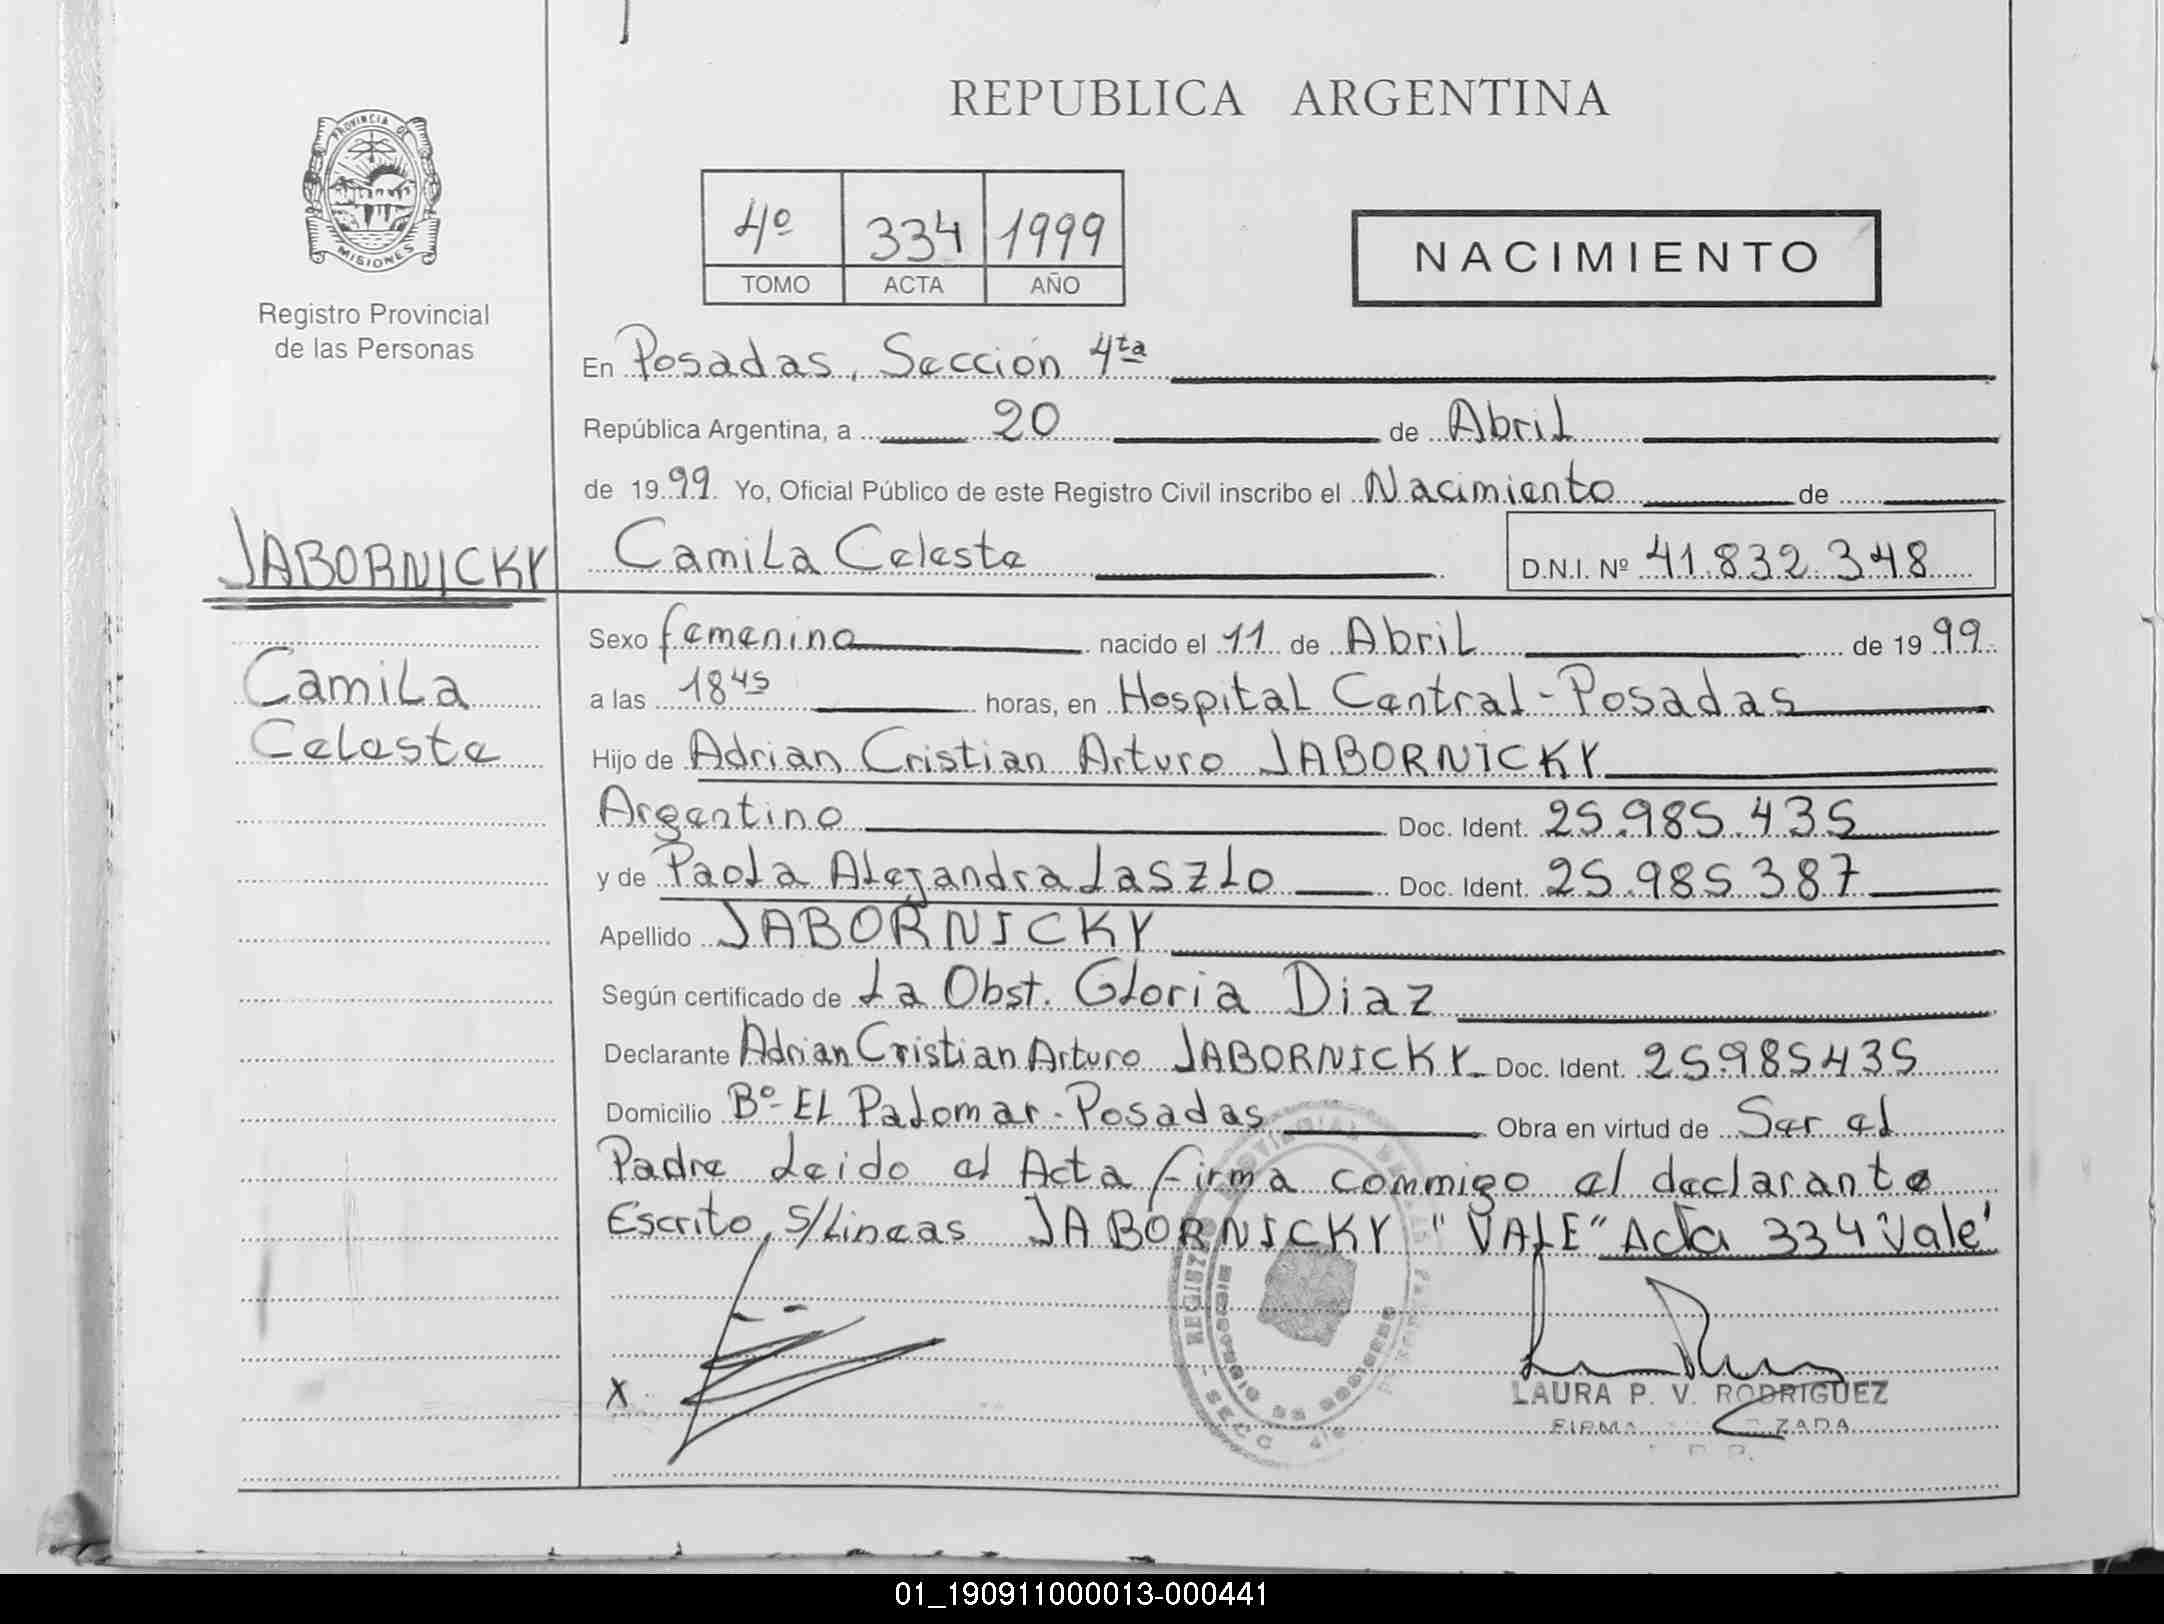 REPUBLICA ARGENTINA
PROVINCIA DE
MISIONES
Registro Provincial
de las Personas
4º 334 1999
TOMO ACTA AÑO
NACIMIENTO
En Posadas, Sección 4ta
República Argentina, a 20 de Abril
de 1999. Yo, Oficial Público de este Registro Civil inscribo el Nacimiento de
JABORNICKY
Camila Celeste D.N.I. Nº 41.832.348
Sexo femenino nacido el 11 de Abril de 1999
Camila
Celeste
a las 1845 horas, en Hospital Central-Posadas
Hijo de Adrian Cristian Arturo JABORNICKY
Argentino Doc. Ident. 25.985.435
y de Paola Alejandra Laszlo Doc. Ident. 25.985.387
Apellido JABORNICKY
Según certificado de La Obst. Gloria Diaz
Declarante Adrian Cristian Arturo JABORNICKY Doc. Ident. 25.985435
Domicilio Bº-El Palomar-Posadas Obra en virtud de Ser el
Padre Leido el Acta firma commigo el declarante
Escrito s/Lineas JABORNICKY "VALE" Acta 334 Vale'
X
LAURA P. V. RODRIGUEZ
01_190911000013-000441